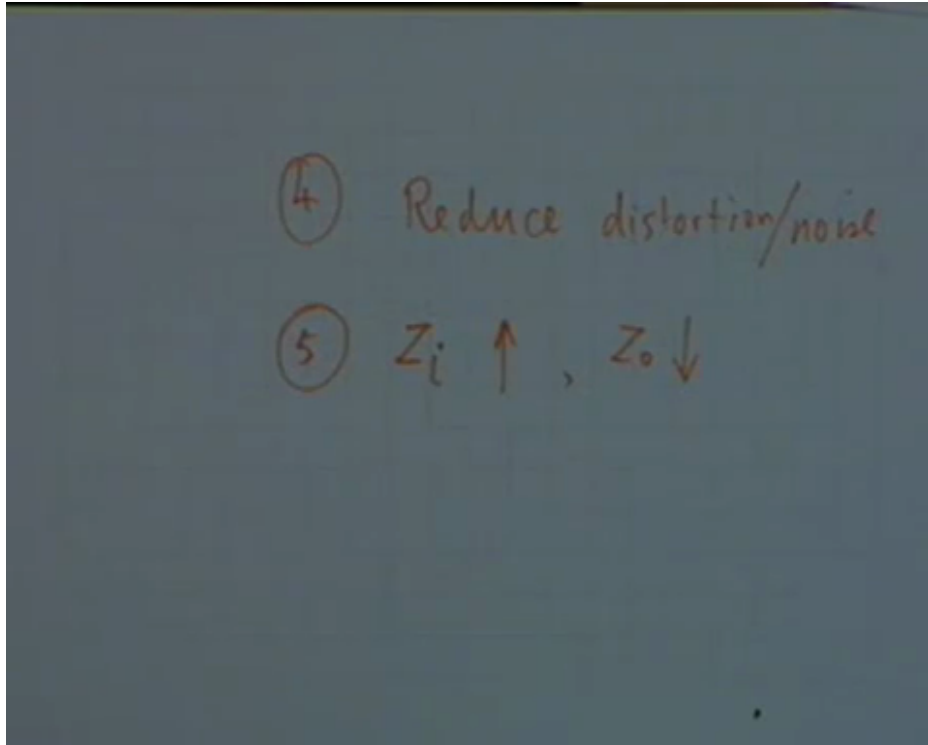 ④ Reduce distortion/noise
⑤ Zi ↑ , Zo ↓